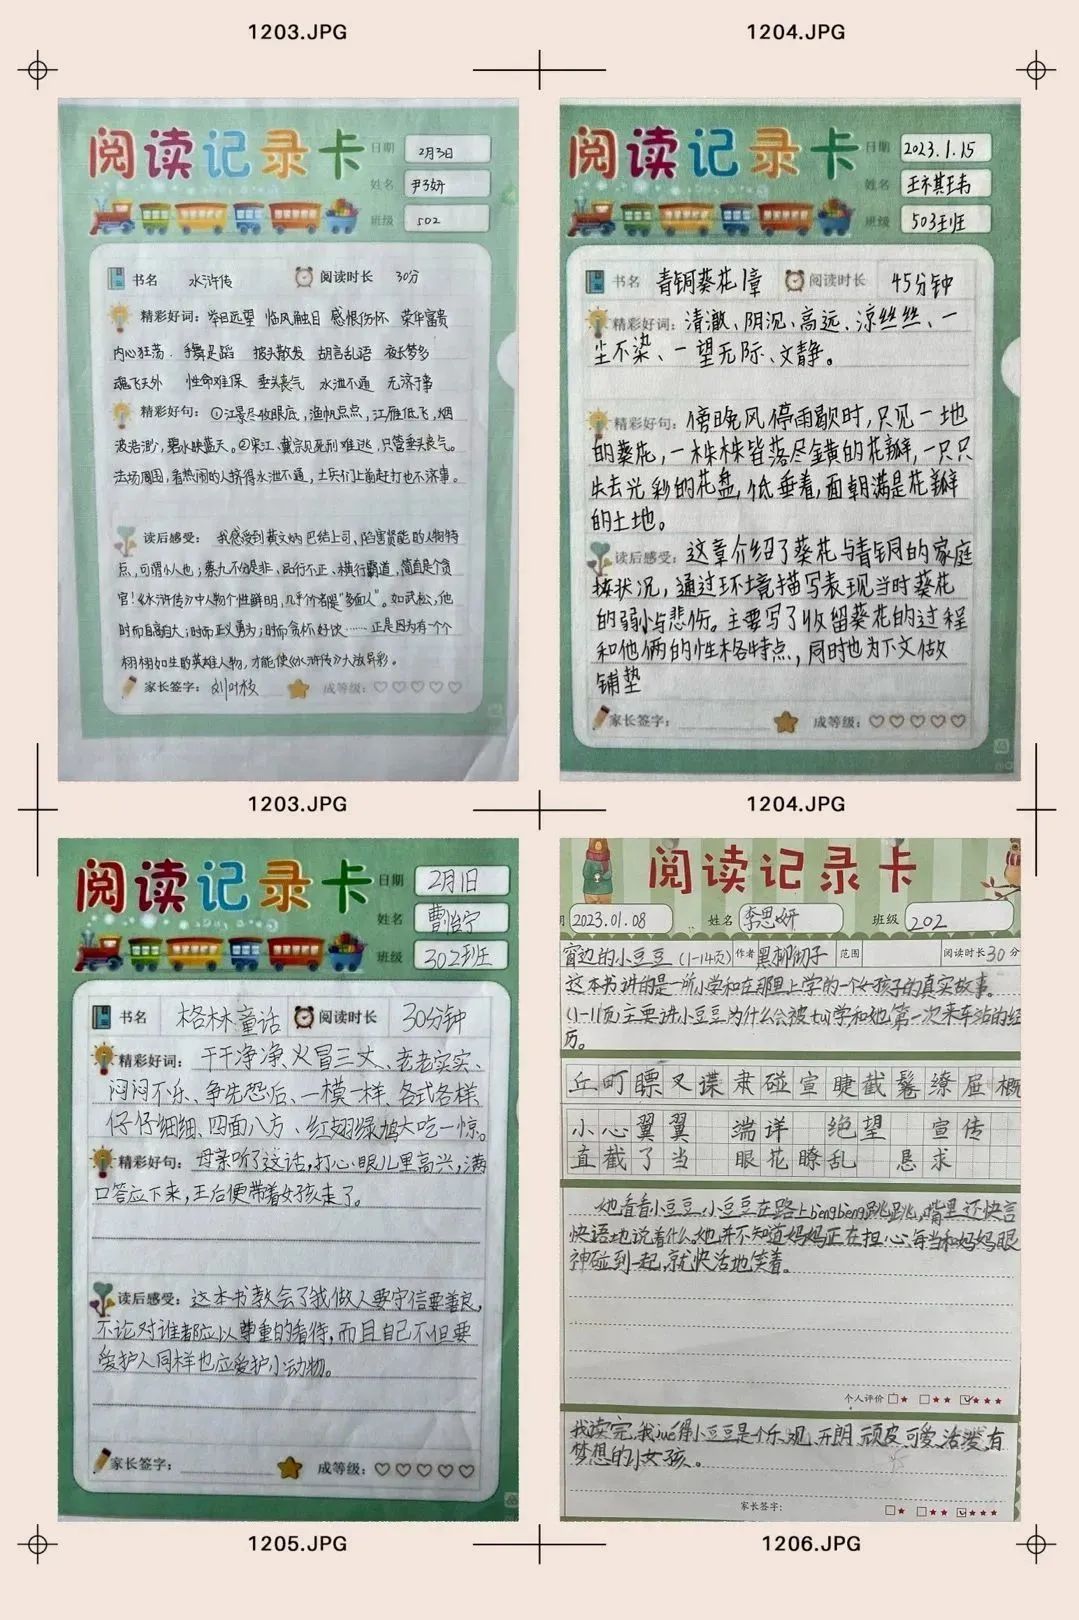 1203.JPG
1204.JPG
阅读记录卡
日期 2月3日
姓名 尹子妍
班级 502
书名 水浒传 阅读时长 30分
精彩好词：举目远望 临风触目 感恨伤怀 荣华富贵
内心狂荡 手舞足蹈 披头散发 胡言乱语 夜长梦多
魂飞天外 性命难保 垂头丧气 水泄不通 无济于事
精彩好句：①江景尽收眼底，渔帆点点，江雁低飞，烟
波浩渺，碧水映蓝天。②宋江、戴宗见死刑难逃，只管垂头丧气。
法场周围，看热闹的人挤得水泄不通，士兵们上前赶打也不济事。
读后感受：我感受到黄文炳巴结上司、陷害贤能的人物特
点，可谓小人也；蔡九不分是非、品行不正、横行霸道，简直是个贪
官！《水浒传》中人物个性鲜明，几乎个个都是“多面人”。如武松，他
时而自高自大；时而正义勇为；时而贪杯好饮……正是因为有一个个
栩栩如生的英雄人物，才能使《水浒传》大放异彩。
家长签字：刘叶枝 成等级：
阅读记录卡
日期 2023.1.15
姓名
班级 503班
书名 青铜葵花1章 阅读时长 45分钟
精彩好词：清澈、阴沉、高远、凉丝丝、一
尘不染、一望无际、文静。
精彩好句：傍晚风停雨歇时，只见一地
的葵花，一株株皆落尽金黄的花瓣，一只只
失去光彩的花盘，低垂着，面朝满是花瓣
的土地。
读后感受：这章介绍了葵花与青铜的家庭
状况，通过环境描写表现当时葵花
的弱小与悲伤。主要写了收留葵花的过程
和他俩的性格特点，同时也为下文做
铺垫
家长签字： 成等级：
1203.JPG
1204.JPG
阅读记录卡
日期 2月1日
姓名 曹怡宁
班级 302班
书名 格林童话 阅读时长 30分钟
精彩好词：干干净净、火冒三丈、老老实实、
闷闷不乐、争先恐后、一模一样、各式各样
仔仔细细、四面八方、红翅绿鸠大吃一惊。
精彩好句：母亲听了这话，打心眼儿里高兴，满
口答应下来，王后便带着女孩走了。
读后感受：这本书教会了我做人要守信要善良，
不论对谁都应以尊重的看待，而且自己不但要
爱护人同样也应爱护小动物。
家长签字： 成等级：
阅读记录卡
2023.01.08 姓名 李思妍 班级 202
窗边的小豆豆（1-14页） 作者 黑柳彻子 范围 阅读时长 30分
这本书讲的是一所小学和在那里上学的一个女孩子的真实故事。
（1-11页）主要讲小豆豆为什么会被tuì学和她第一次来车站的经
历。
丘町瞟叉谍肃碰宣睫截鬈缭屈概
小心翼翼 端详 绝望 宣传
直截了当 眼花瞭乱 恳求
她看着小豆豆，小豆豆在路上bèngbèng跳跳，嘴里还快言
快语地说着什么。她并不知道妈妈正在担心，每当和妈妈眼
神碰到一起，就快活地笑着。
个人评价 ★ ★★ ★★★
我读完，我jué得小豆豆是个乐观、开朗、顽皮、可爱、活泼、有
梦想的小女孩。
家长签字： ★ ★★ ★★★
1205.JPG
1206.JPG